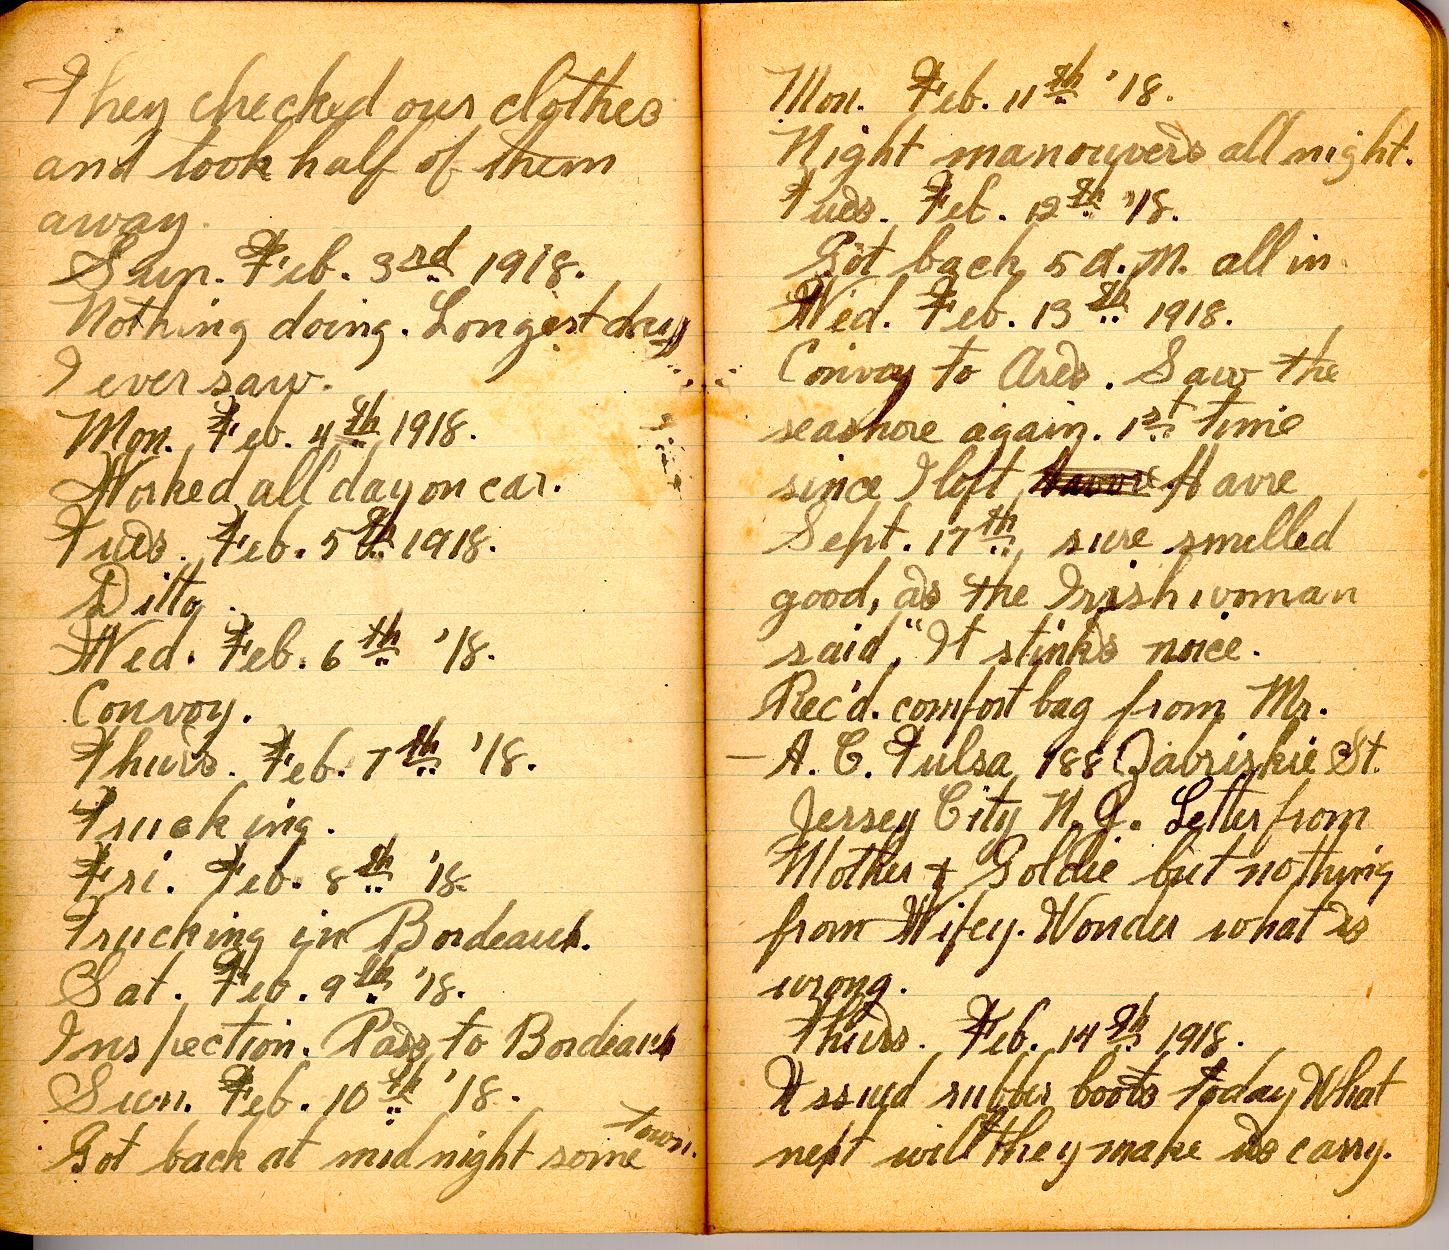 They checked our clothes
and took half of them
away.
Sun. Feb. 3rd 1918.
Nothing doing. Longest day
I ever saw.
Mon. Feb. 4th 1918.
Worked all day on car.
Tues. Feb. 5th 1918.
Ditto.
Wed. Feb. 6th '18.
Convoy.
Thurs. Feb. 7th '18.
Trucking.
Fri. Feb. 8th '18.
Trucking in Bordeaux.
Sat. Feb. 9th '18.
Inspection. Pass to Bordeaux
Sun. Feb. 10th '18.
Got back at midnight some town.
Mon. Feb. 11th '18.
Night manouvers all night.
Tues. Feb. 12th '18.
Got back 5 A.M. all in
Wed. Feb. 13th 1918.
Convoy to Ares. Saw the
seashore again. 1st time
since I left Havre
Sept. 17th, sure smelled
good, as the Irish woman
said, "It stinks noice.
Rec'd. comfort bag from Mr.
— A. C. Tulsa, 188 Zabriskie St.
Jersey City N.J. Letter from
Mother & Goldie but nothing
from Wifey. Wonder what is
wrong.
Thurs. Feb. 14th 1918.
Issued rubber boots today What
next will they make us carry.